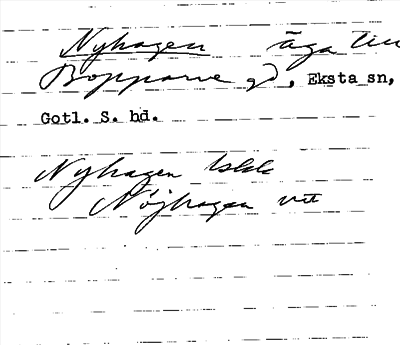 Nyhagen äga till
Bopparve gd, Eksta sn,
Gotl. S. hd.
Nyhagen
Nöjhagen